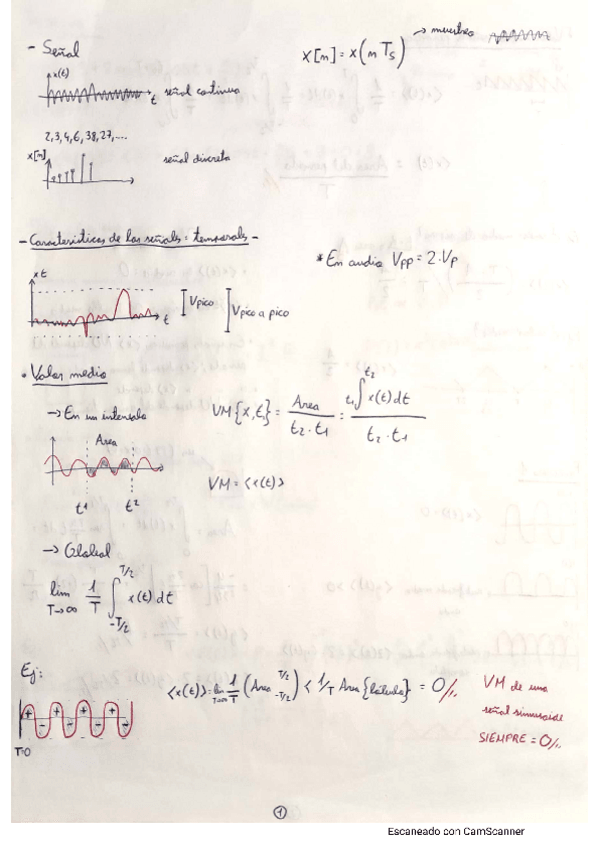 - Señal
x[m] = x(m Ts) → muestreo
x(t)
t señal continua
2,3,4,6,38,27,....
x[m]
señal discreta
- Características de las señales: temporals -
* En audio Vpp = 2·Vp
x t
t
Vpico
Vpico a pico
• Valor medio
→ En un intervalo
VM{x,t} = Area / t2 - t1 = t1∫t2 x(t) dt / t2 - t1
Area
t1 t2
VM = <x(t)>
→ Global
lim T→∞ 1/T ∫-T/2 T/2 x(t) dt
Ej:
<x(t)> = lim T→∞ 1/T (Area T/2 -T/2) < 1/T Area {lóbulo} = 0//.
VM de una
señal sinusoide
SIEMPRE = 0//.
T=0
1
Escaneado con CamScanner